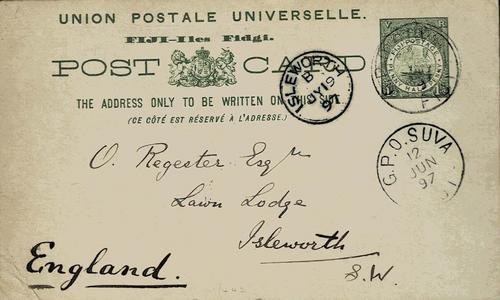 UNION POSTALE UNIVERSELLE.
FIJI-Iles Fidgi.
POST CARD
THE ADDRESS ONLY TO BE WRITTEN ON THIS
(CE CÔTÉ EST RÉSERVÉ À L'ADRESSE.)
ISLEWORTH
B
JY 19
97
G.P.O. SUVA
12
JUN
97
O. Regester Esqre
Lawn Lodge
Isleworth
S.W.
England.